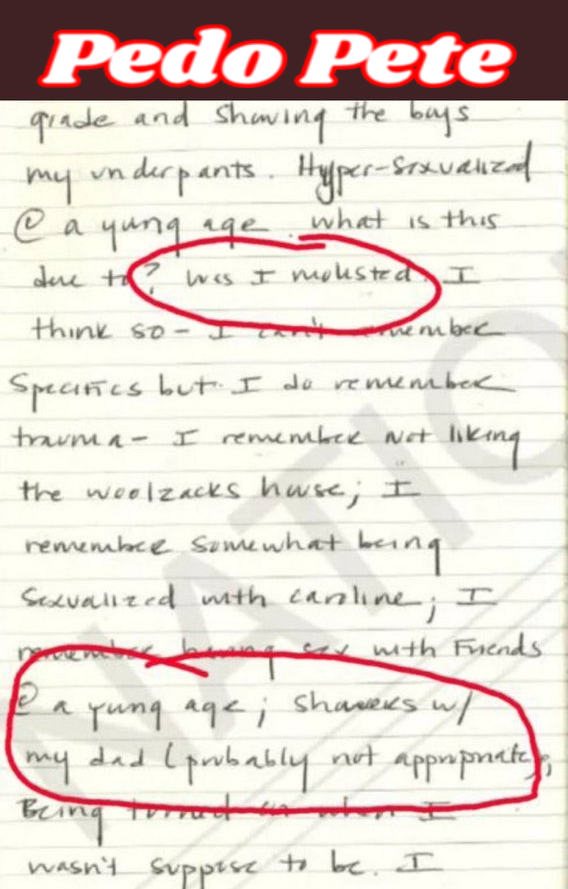 Pedo Pete
grade and showing the boys
my underpants. Hyper-sexualized
@ a yung age. what is this
due to? Was I molested. I
think so - I can't remember
specifics but I do remember
trauma - I remember not liking
the woolzacks house; I
remember somewhat being
sexualized with caroline; I
remember having sex with Friends
@ a yung age; showers w/
my dad (probably not appropriate),
Being turned on when I
wasn't suppose to be. I
NATIO